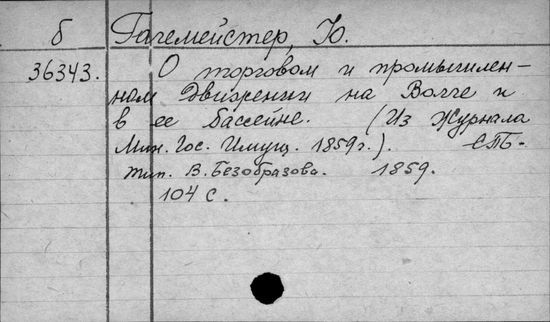 б Гагемейстер, Ю.
36343. О торговом и промышлен-
ном движении на Волге и
в ее бассейне. (Из Журнала
Мин. Гос. Имущ. 1859г.). СПБ.
тип. В. Безобразова. 1859.
104 с.